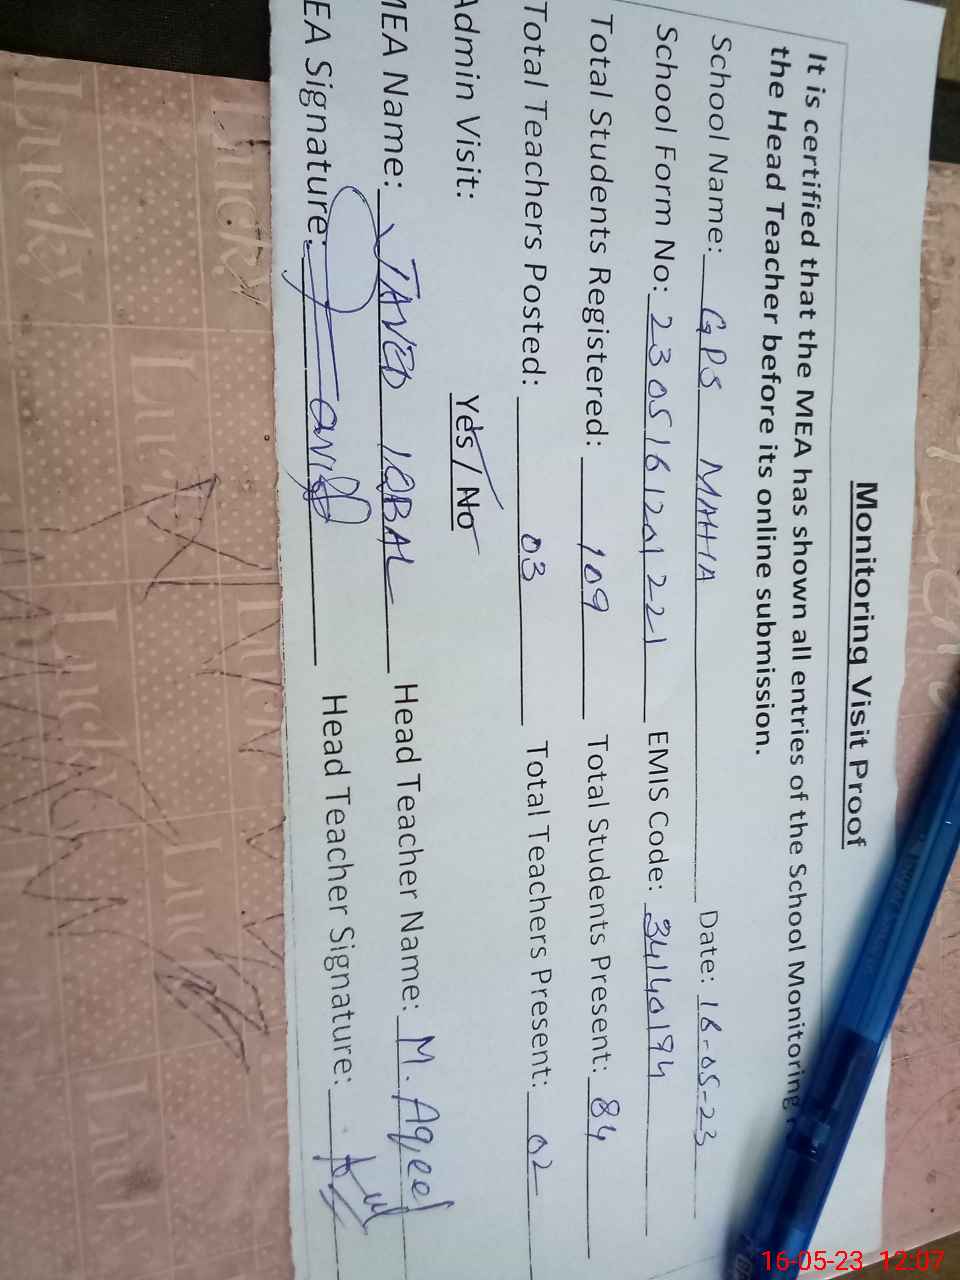 Monitoring Visit Proof
It is certified that the MEA has shown all entries of the School Monitoring
the Head Teacher before its online submission.
School Name: GPS MAHIA Date: 16-05-23
School Form No: 2305161201221 EMIS Code: 34140194
Total Students Registered: 109 Total Students Present: 84
Total Teachers Posted: 03 Total Teachers Present: 02
Admin Visit: Yes / No
MEA Name: JAVED IQBAL Head Teacher Name: M. Aqeel
EA Signature: Head Teacher Signature:
Lucky
16-05-23 12:07